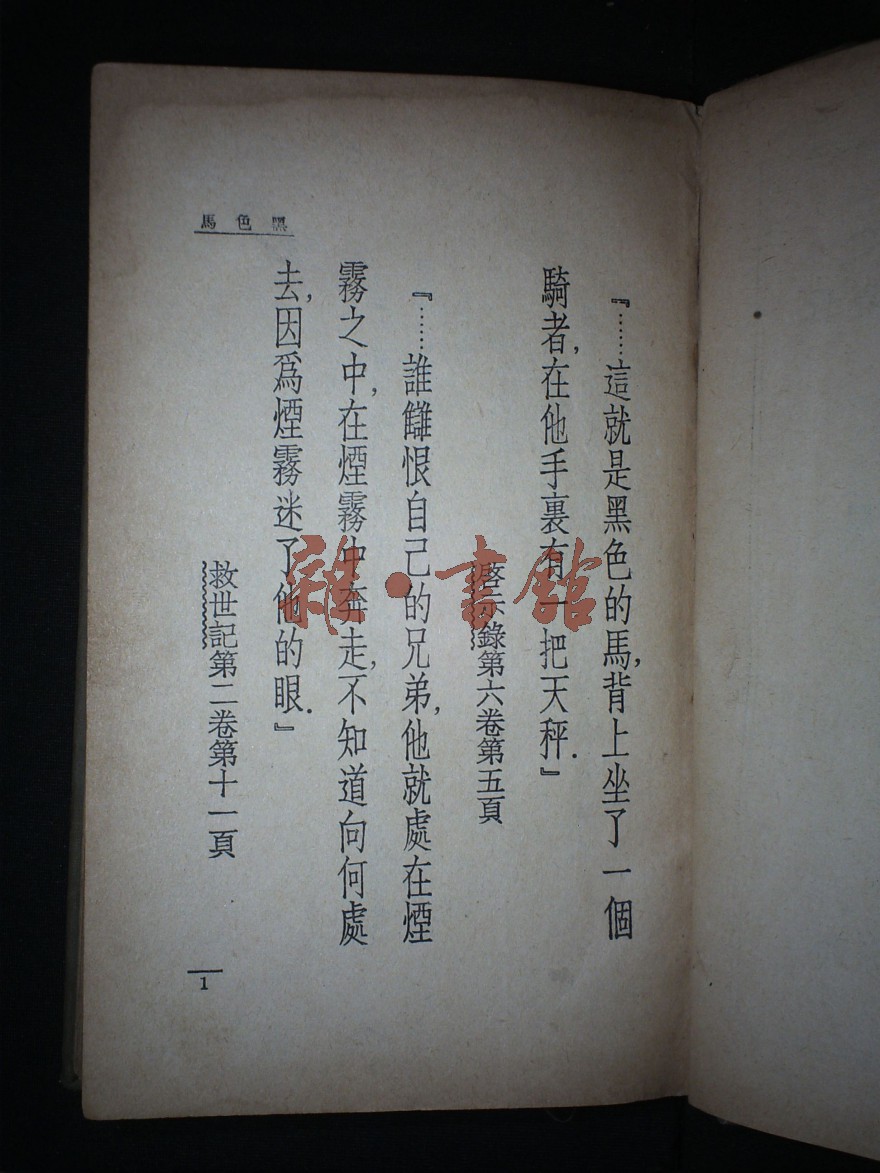 黑色馬
『……這就是黑色的馬，背上坐了一個
騎者，在他手裏有一把天秤．』
啓示錄第六卷第五頁
『……誰讎恨自己的兄弟，他就處在煙
霧之中，在煙霧中奔走，不知道向何處
去，因爲煙霧迷了他的眼．』
救世記第二卷第十一頁
1
雜·書館